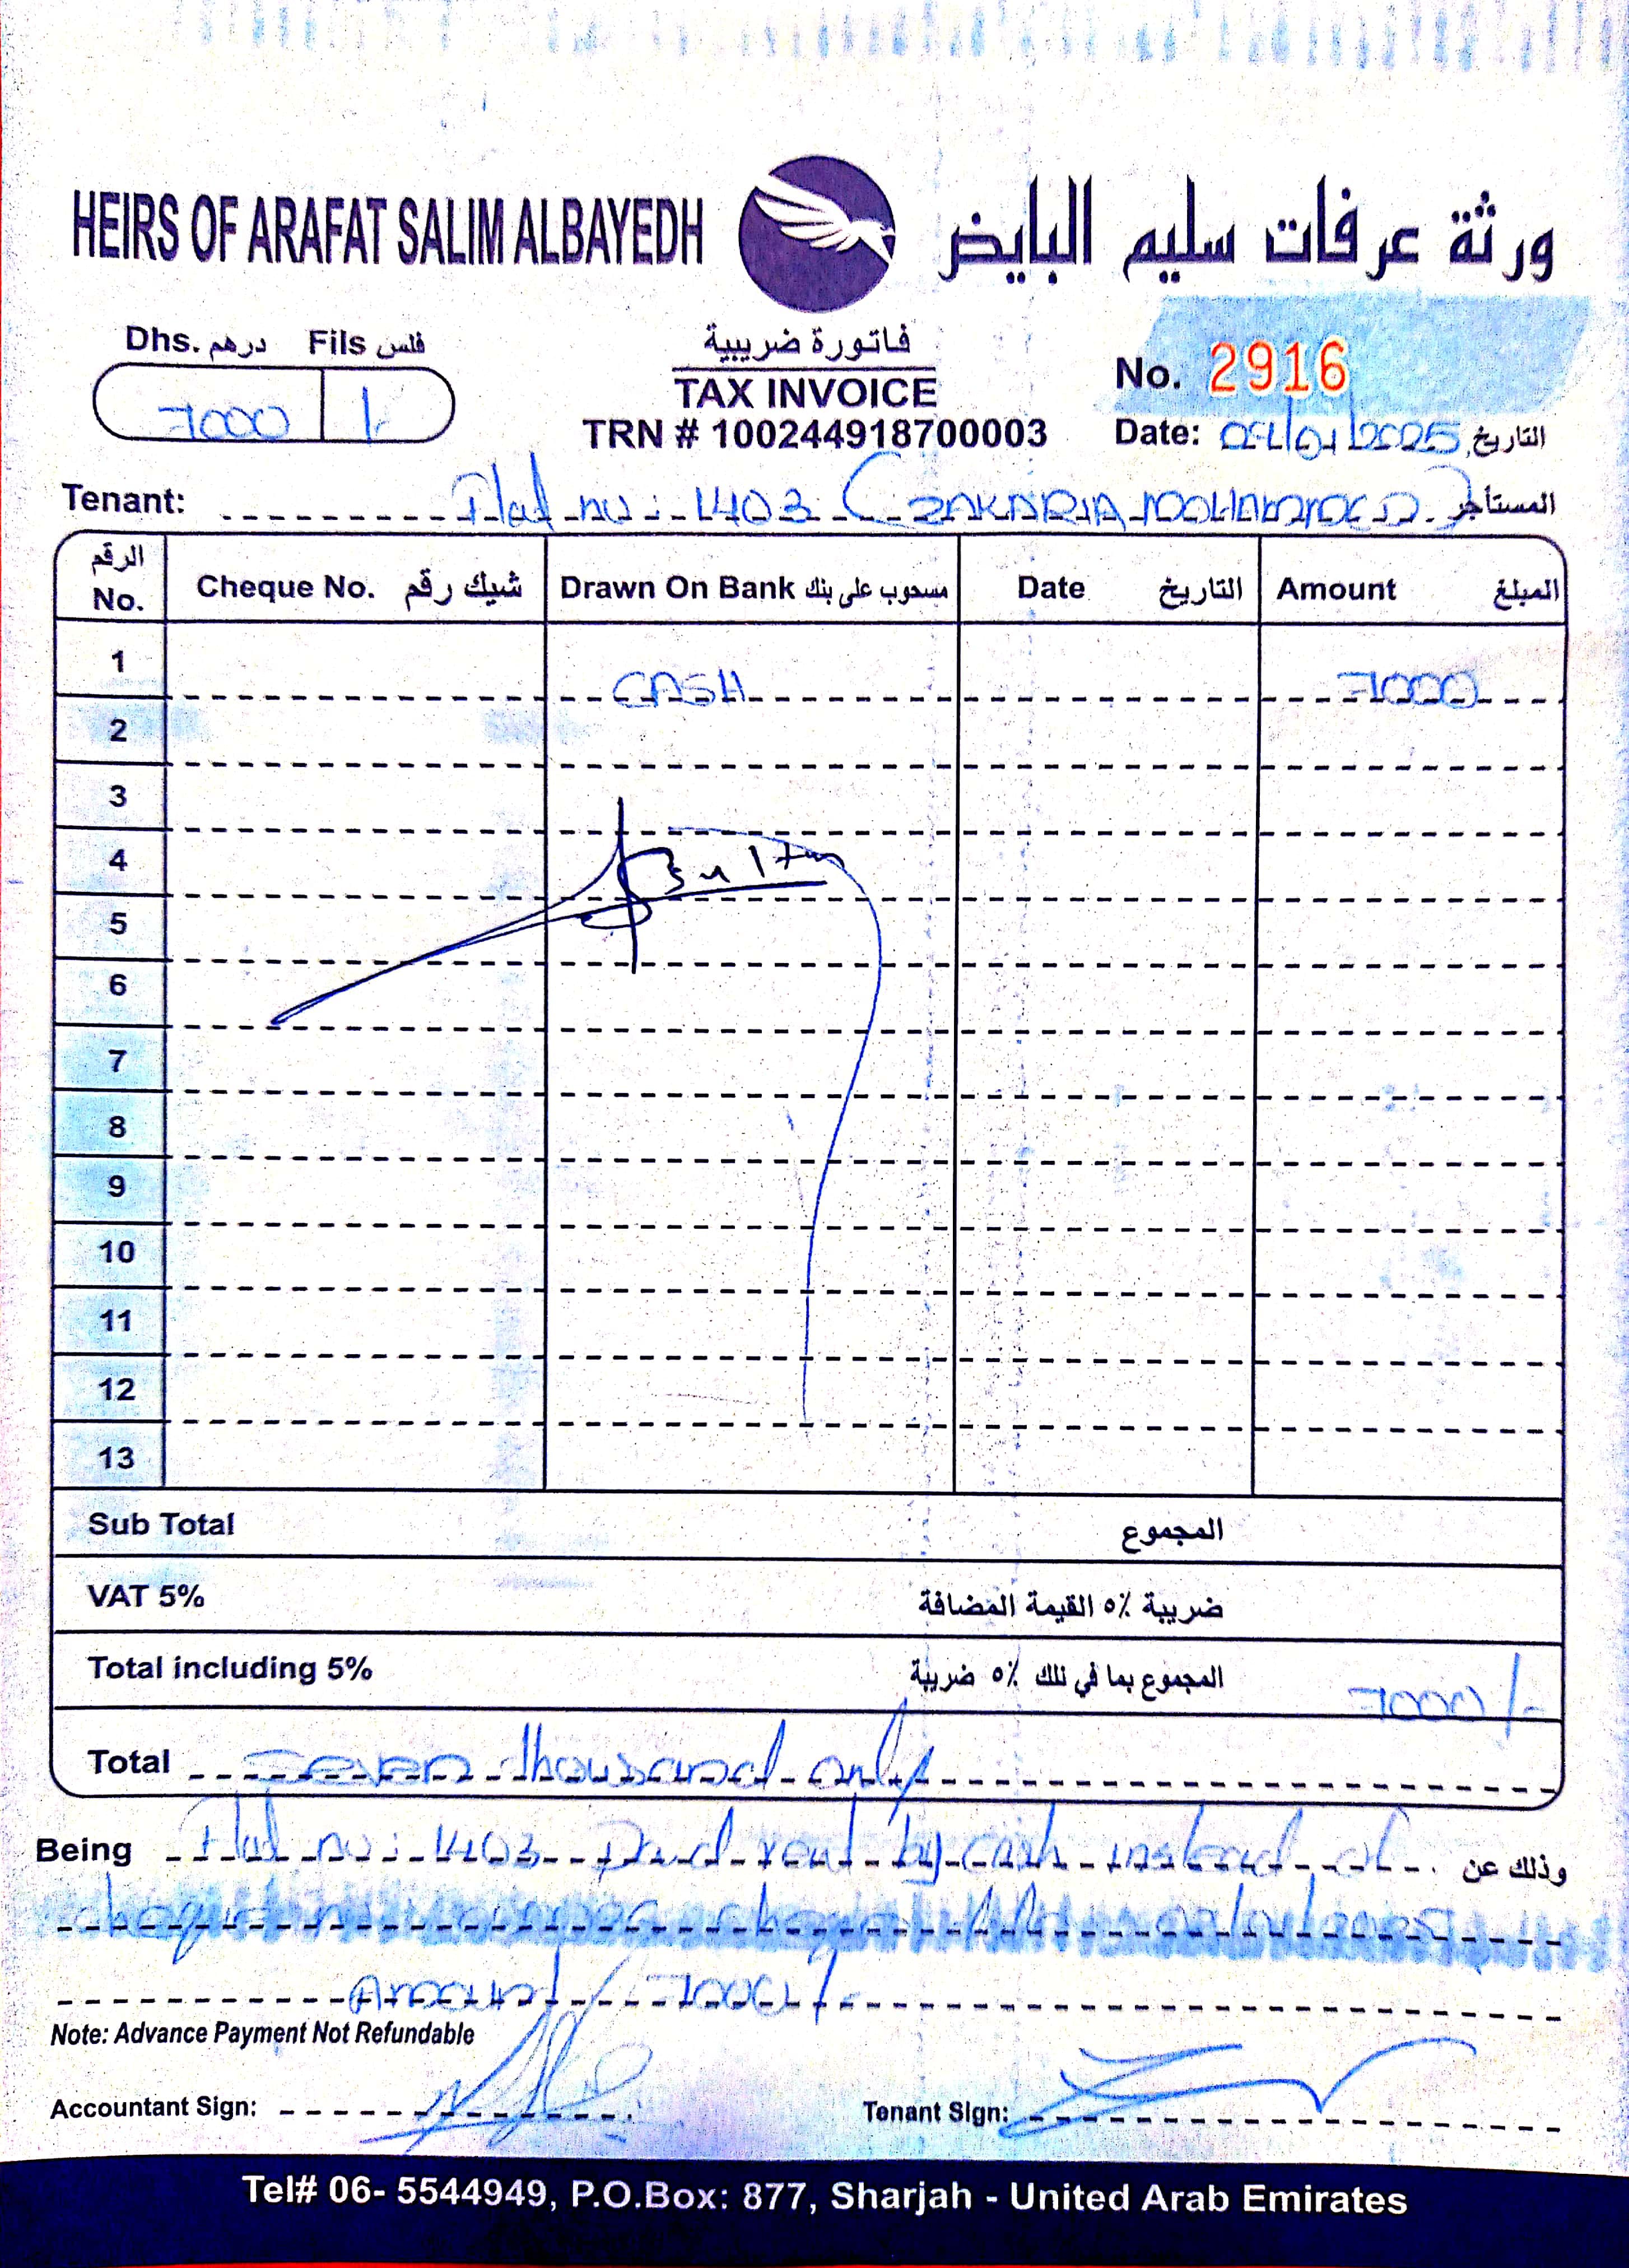 HEIRS OF ARAFAT SALIM ALBAYEDH
ورثة عرفات سليم البايض
Dhs. درهم Fils فلس
7000 /-
فاتورة ضريبية
TAX INVOICE
TRN # 100244918700003
No. 2916
Date: 04/01/2025 التاريخ
Tenant: Flat no:-1403 (ZAKARIA MOHAMMED) المستأجر
الرقم No. Cheque No. شيك رقم Drawn On Bank مسحوب على بنك Date التاريخ Amount المبلغ
1 CASH 7000
2
3
4 Sultan
5
6
7
8
9
10
11
12
13
Sub Total المجموع
VAT 5% ضريبة ٥٪ القيمة المضافة
Total including 5% المجموع بما في تلك ٥٪ ضريبة 7000/-
Total Seven thousand only
Being Flat no:-1403 Paid rent by cash instead of وذلك عن
cheque no cheque
Amount / 7000/-
Note: Advance Payment Not Refundable
Accountant Sign:
Tenant Sign:
Tel# 06- 5544949, P.O.Box: 877, Sharjah - United Arab Emirates